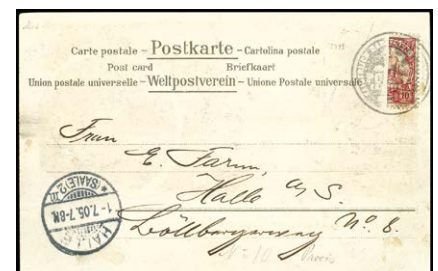 Carte postale – Postkarte – Cartolina postale
Post card Briefkaart
Union postale universelle – Weltpostverein – Unione Postale universale
10
Frau
E.
Halle a/ S.
Böllbergerweg No 8.
HALLE
(SAALE) 2
1.7.05.7-8N.